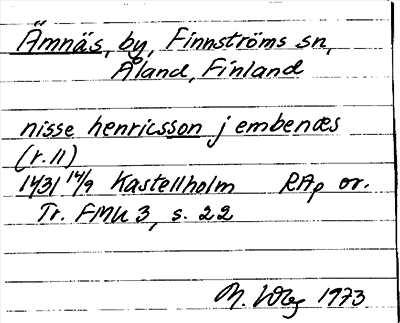 Ämnäs, by, Finnströms sn,
Åland, Finland
nisse henricsson j embenæs
(r. 11)
1431 14/9 Kastellholm RAp or.
Tr. FMU 3, s. 22
1973